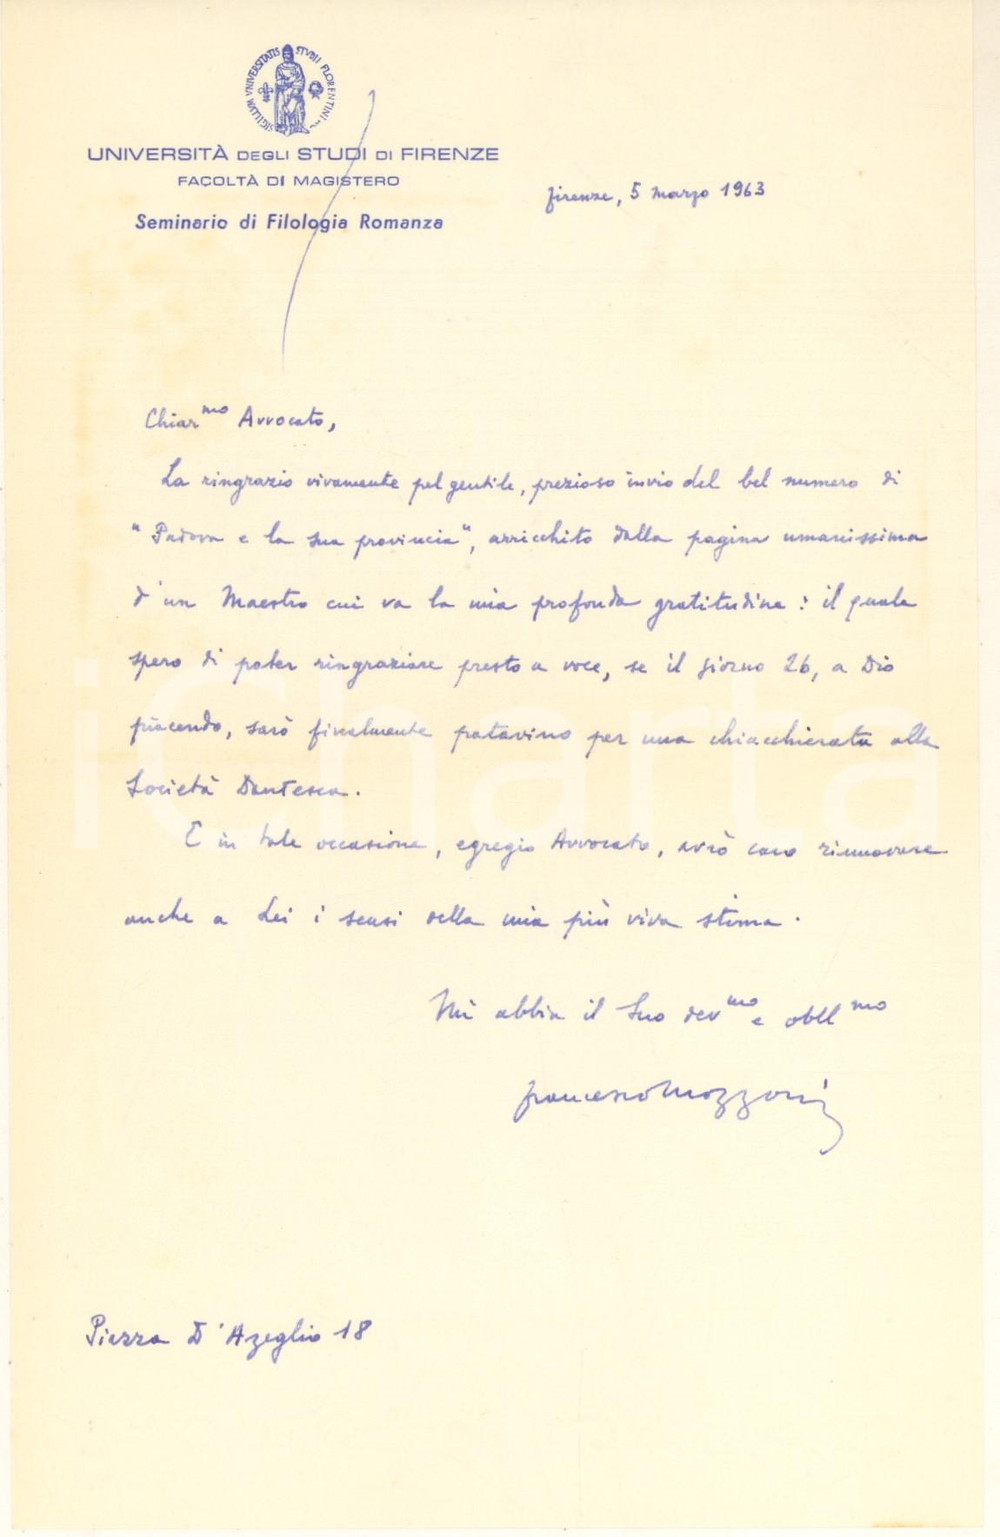 SIGILLUM UNIVERSITATIS STUDII FLORENTINI
UNIVERSITÀ DEGLI STUDI DI FIRENZE
FACOLTÀ DI MAGISTERO
Seminario di Filologia Romanza
Firenze, 5 marzo 1963
Chiar.mo Avvocato,
La ringrazio vivamente pel gentile, prezioso invio del bel numero di
"Padova e la sua provincia", arricchito dalla pagina umanissima
d'un Maestro cui va la mia profonda gratitudine: il quale
spero di poter ringraziare presto a voce, se il giorno 26, a Dio
piacendo, sarò finalmente patavino per una chiacchierata alla
Società Dantesca.
E in tale occasione, egregio Avvocato, avrò caro rinnovare
anche a Lei i sensi della mia più viva stima.
Mi abbia il Suo dev mo e obbl mo
Francesco Mazzoni
Piazza D'Azeglio 18
iCharta